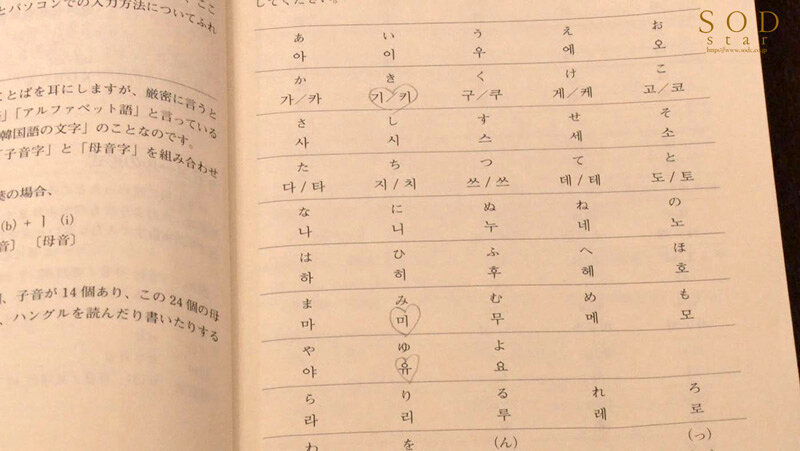 とパソコンでの入力方法についてふれ
ことばを耳にしますが、厳密に言うと
」「アルファベット語」と言っている
韓国語の文字」のことなのです。
「子音字」と「母音字」を組み合わせ
の場合、
(b) + ㅣ (i)
音〕 〔母音〕
、子音が 14 個あり、この 24 個の母
、ハングルを読んだり書いたりする
してください。
あ い う え お
아 이 우 에 오
か き く け こ
가/카 기/키 구/쿠 게/케 고/코
さ し す せ そ
사 시 스 세 소
た ち つ て と
다/타 지/치 쓰/쓰 데/테 도/토
な に ぬ ね の
나 니 누 네 노
は ひ ふ へ ほ
하 히 후 헤 호
ま み む め も
마 미 무 메 모
や ゆ よ
야 유 요
ら り る れ ろ
라 리 루 레 로
わ を (ん) (っ)
SOD
star
https://www.sodc.co.jp